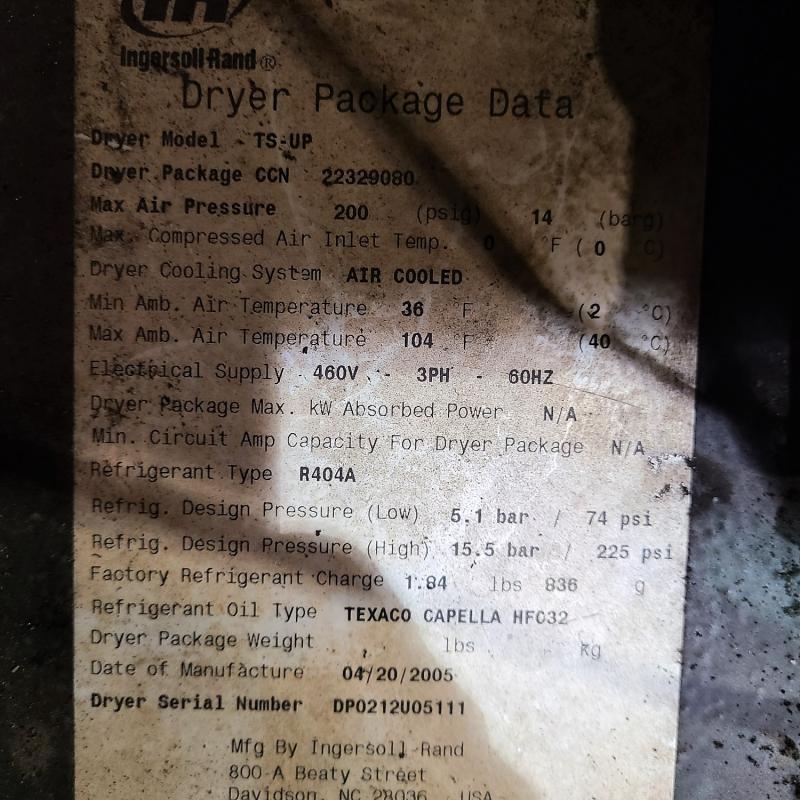 IR
Ingersoll-Rand®
Dryer Package Data
Dryer Model TS-UP
Dryer Package CCN 22329080
Max Air Pressure 200 (psig) 14 (barg)
Max. Compressed Air Inlet Temp. 0 °F ( 0 °C)
Dryer Cooling System AIR COOLED
Min Amb. Air Temperature 36 °F (2 °C)
Max Amb. Air Temperature 104 °F (40 °C)
Electrical Supply 460V - 3PH - 60HZ
Dryer Package Max. kW Absorbed Power N/A
Min. Circuit Amp Capacity For Dryer Package N/A
Refrigerant Type R404A
Refrig. Design Pressure (Low) 5.1 bar / 74 psi
Refrig. Design Pressure (High) 15.5 bar / 225 psi
Factory Refrigerant Charge 1.84 lbs 836 g
Refrigerant Oil Type TEXACO CAPELLA HFC32
Dryer Package Weight lbs kg
Date of Manufacture 04/20/2005
Dryer Serial Number DP0212U05111
Mfg By Ingersoll-Rand
800-A Beaty Street
Davidson, NC 28036 USA